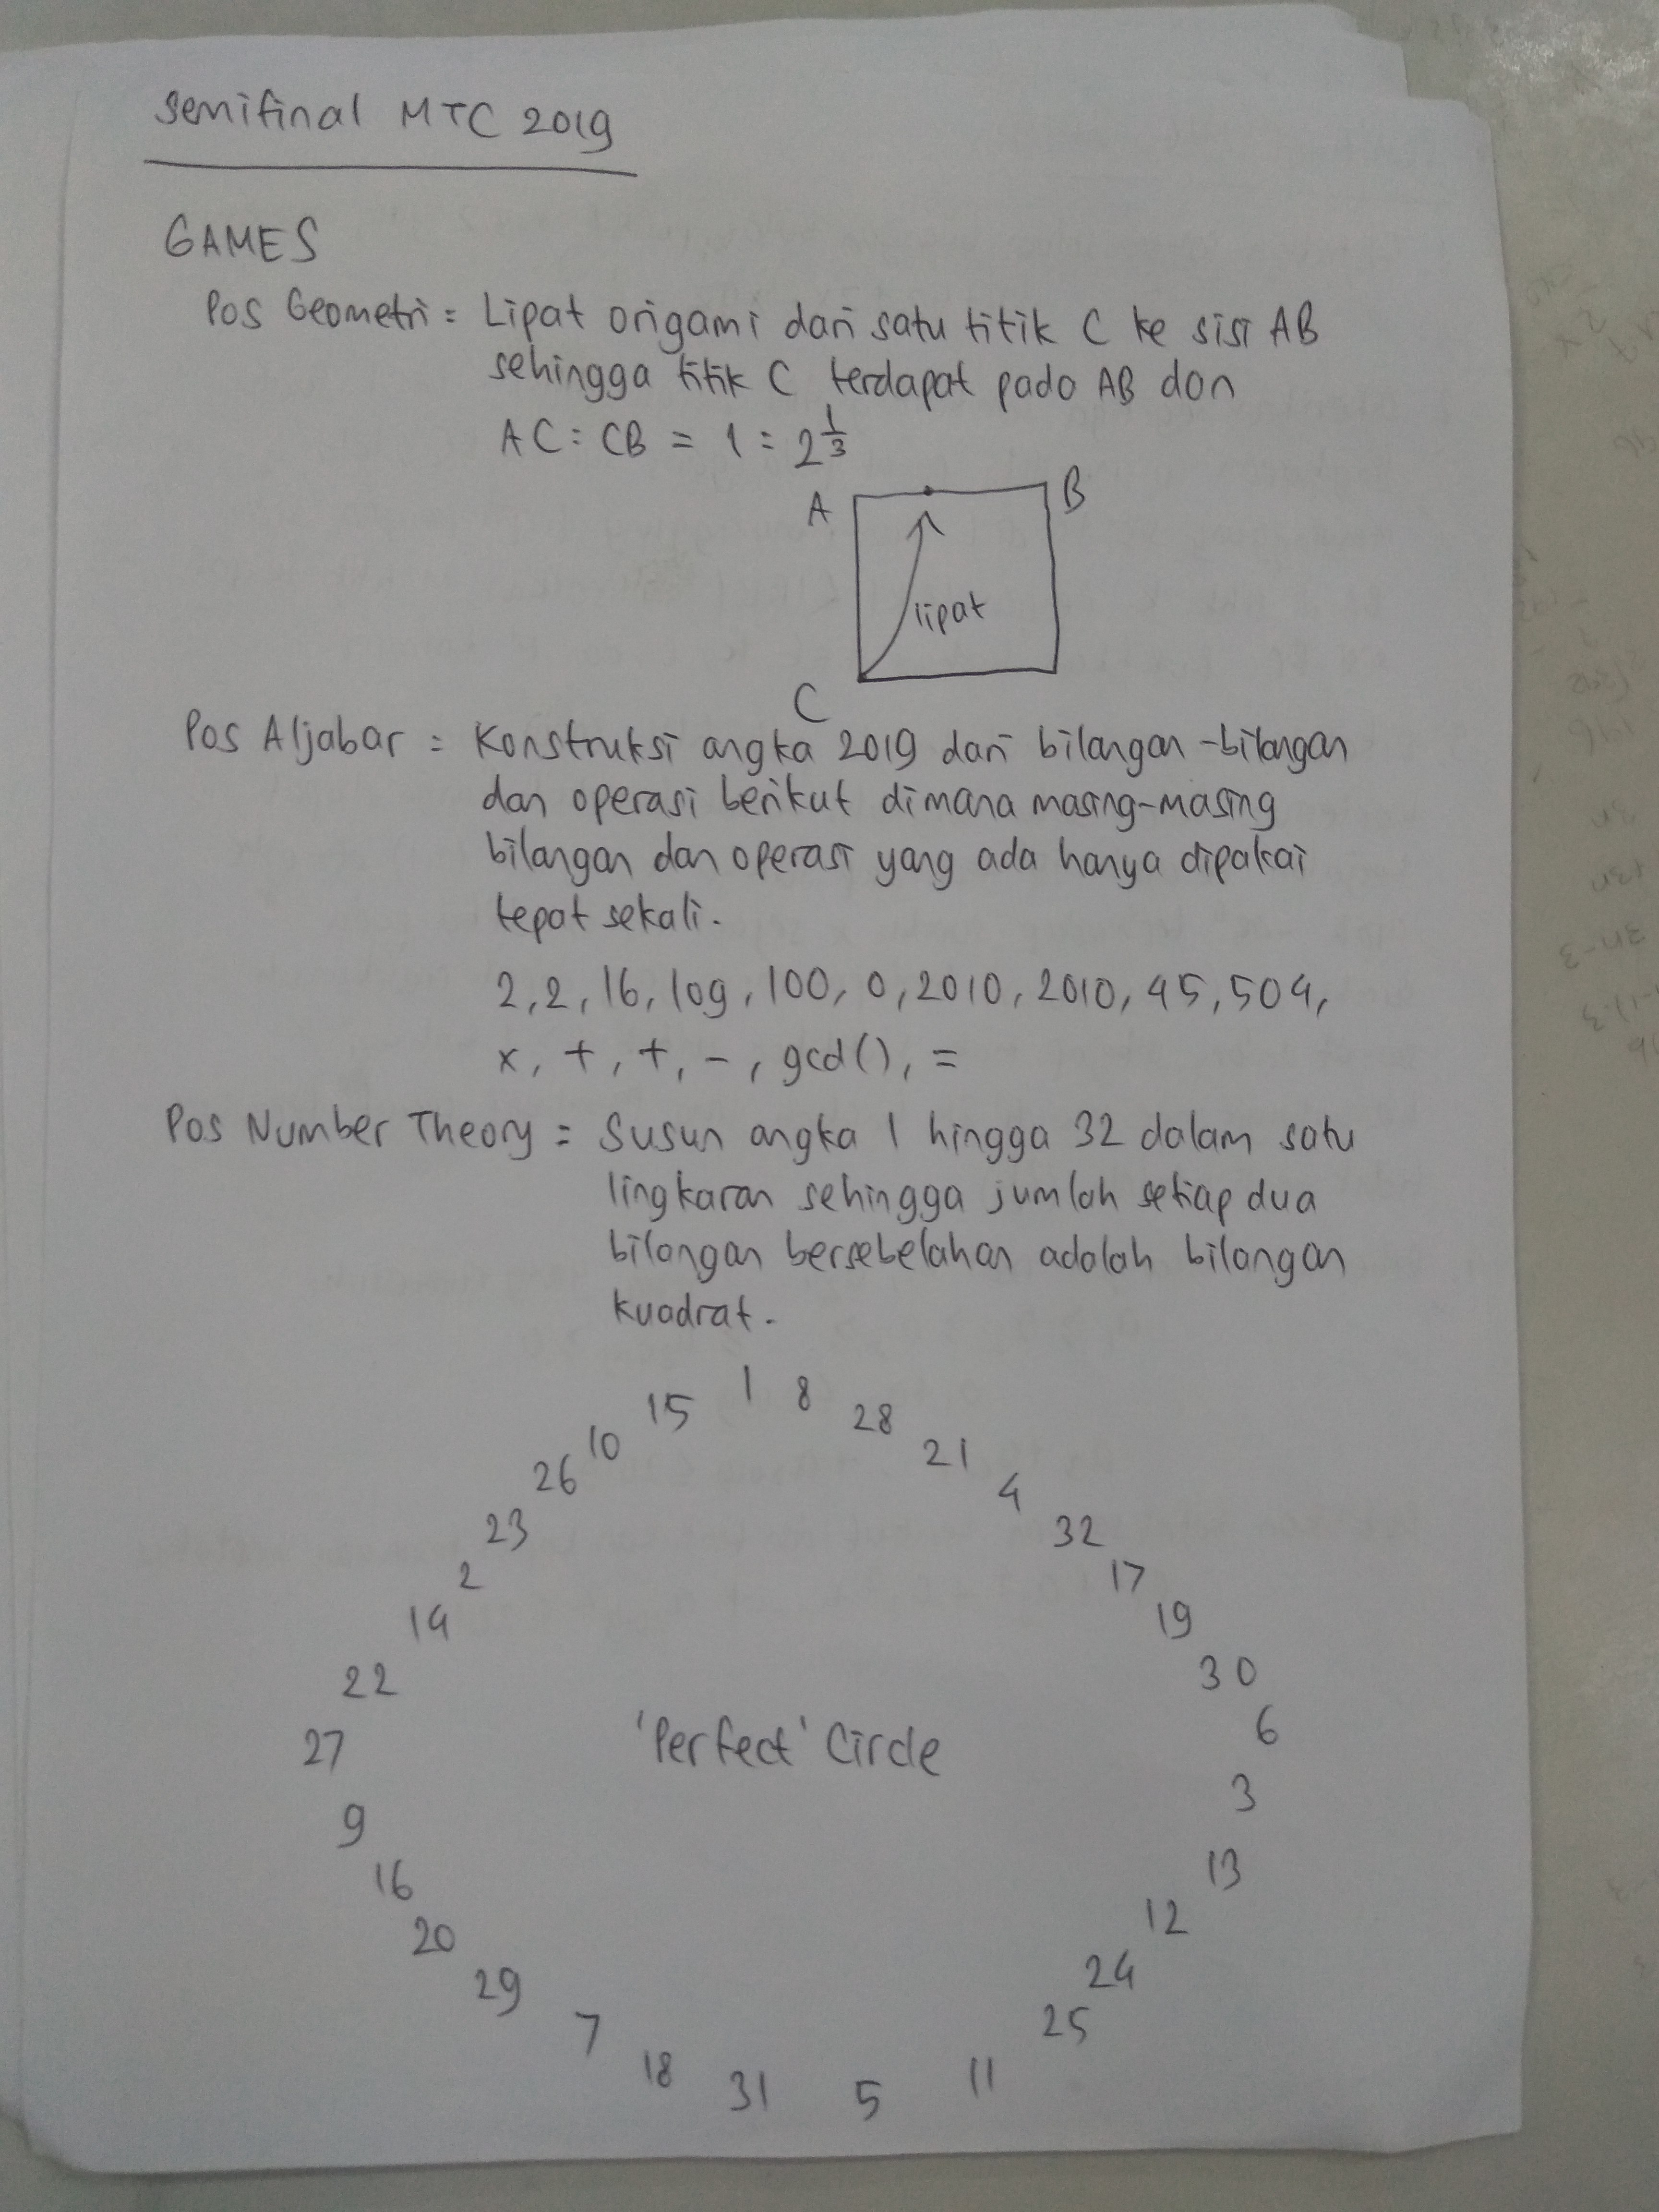 Semifinal MTC 2019
GAMES
Pos Geometri = Lipat origami dari satu titik C ke sisi AB
sehingga titik C terdapat pada AB dan
AC : CB = 1 : 2 1/3
A B
lipat
C
Pos Aljabar = Konstruksi angka 2019 dari bilangan-bilangan
dan operasi berikut dimana masing-masing
bilangan dan operasi yang ada hanya dipakai
tepat sekali.
2, 2, 16, log, 100, 0, 2010, 2010, 45, 504,
x, +, +, -, gcd(), =
Pos Number Theory = Susun angka 1 hingga 32 dalam satu
lingkaran sehingga jumlah setiap dua
bilangan bersebelahan adalah bilangan
kuadrat.
15 1 8 28
26 10 21
23 4 32
2 17
14 19
22 30
27 'Perfect' Circle 6
9 3
16 13
20 12
29 24
7 25
18 31 5 11